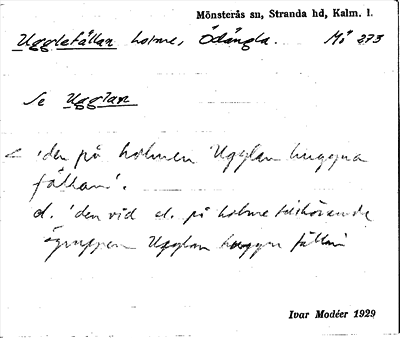 Mönsterås sn, Stranda hd, Kalm. l.
Ugglefällan holme, Ödängla. Mö 373
Se Ugglan
'den på holmen Ugglan huggna
fällan'.
d. 'den vid el. på holme tillhörande
ögruppen Ugglan huggna fällan'
Ivar Modéer 1929